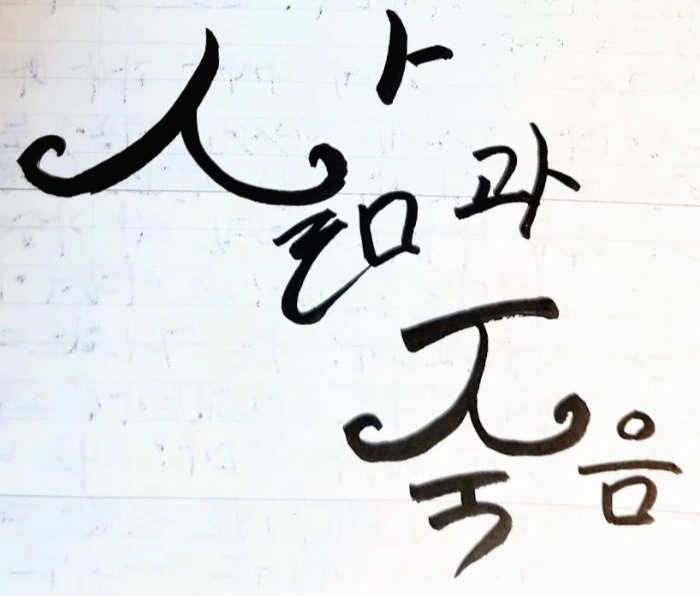 삶과
죽음